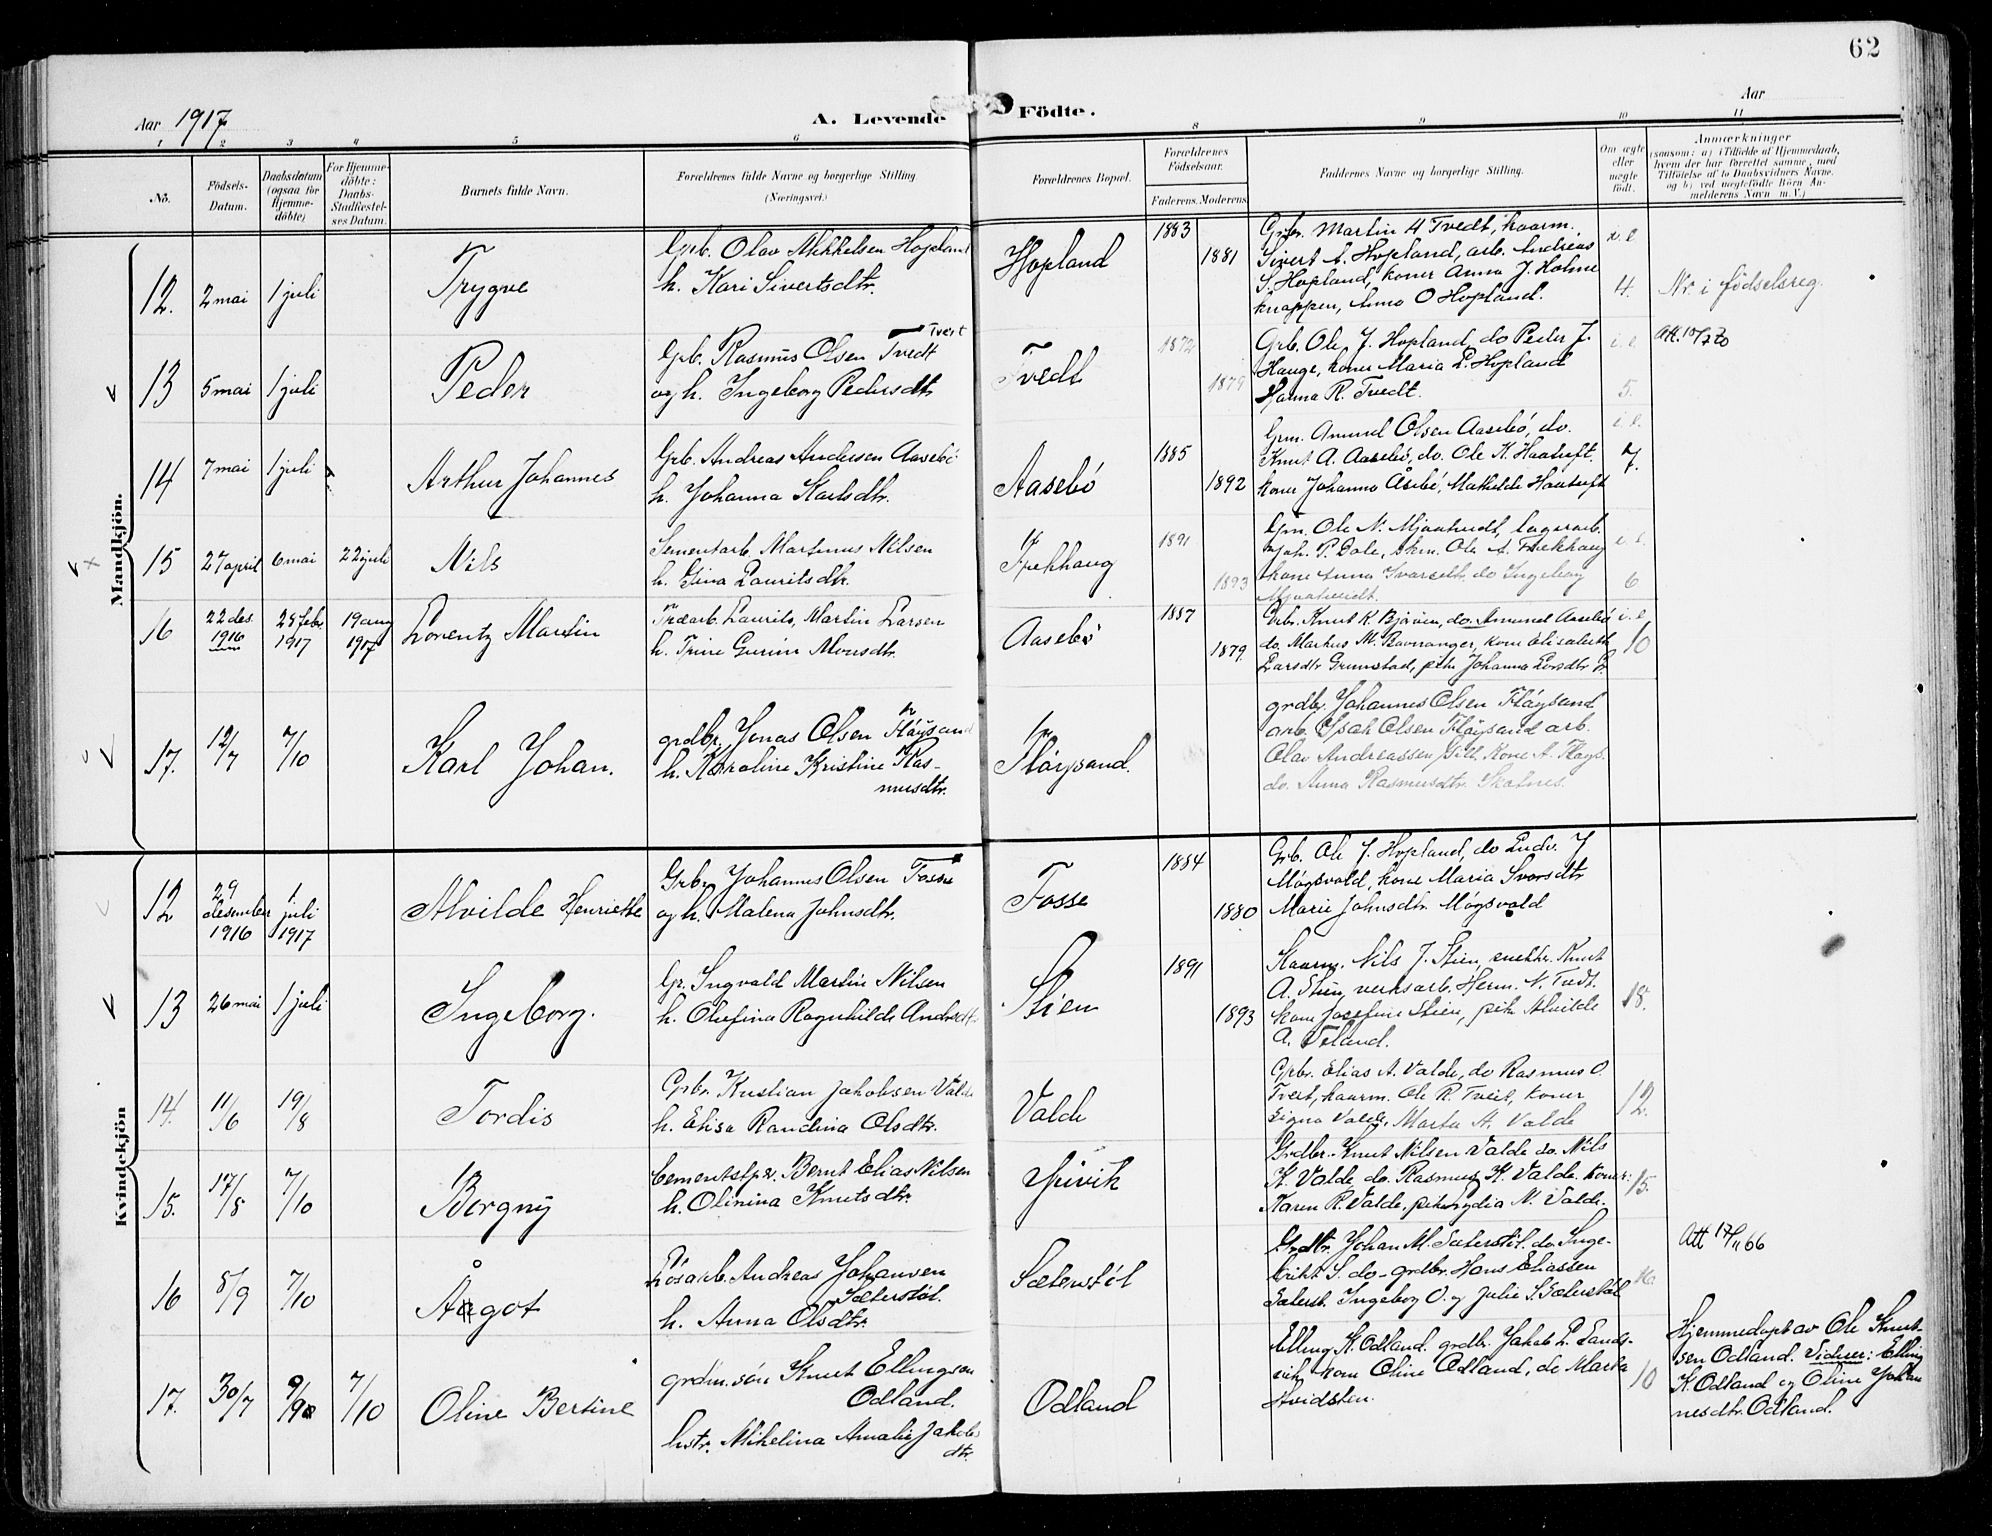 62
Aar 1917
A. Levende Födte.
Aar
1 2 3 4 5 6 8 9 10 11
No.
Födsels-Datum.
Daabsdatum (ogsaa for Hjemmedöbte)
For Hjemmedöbte: Daabs-Stadfæstelses Datum.
Barnets fulde Navn.
Forældrenes fulde Navne og borgerlige Stilling. (Næringsvei.)
Forældrenes Bopæl.
Forældrenes Födselsaar.
Faderens. Moderens.
Faddernes Navne og borgerlige Stilling.
Om ægte eller uægte födt.
Anmærkninger
(saasom: a) i Tilfælde af Hjemmedaab, hvem der har forrettet samme, med Tilföielse af to Daabsvidners Navne, og b) ved uægtefödte Börn Anmelderens Navn m. V.)
Mandkjön.
12. 2 mai 1 juli Trygve
Grb. Olav Mikkelsen Hopland
h. Kari Sivertsdtr.
Hopland 1883 1881
Grbr. Martin H Tvedt, kaarm.
Sivert A. Hopland, arb. Andreas
S. Hopland, koner Anna J. Holme
knappen, Anna O Hopland.
4.
Nr. i födselsreg.
13 5 mai 1 juli Peder
Grb. Rasmus Olsen Tvedt
Tveit
og h. Ingeborg Pedersdtr
Tvedt 1872 1879
Grb. Ole J. Hopland, do Peder J.
Hauge, koner Maria P. Hopland
Hanna R. Tvedt.
i. e.
5.
Att. 10/7 20
14 7 mai 1 juli Arthur Johannes
Grb. Andreas Andersen Aasebö
h. Johanna Karlsdtr.
Aasebö 1885 1892
Grm. Amund Olsen Aasebö, do.
Knut A. Aasebö, do. Ole K. Haatuft.
koner Johanna Åsebö, Mathilde Haatuft
i. e.
7.
15 27 april 6 mai 22 juli Nils
Sementarb. Martinus Nilsen
h. Gina Lauritsdtr.
Trekhaug 1891 1893
Grm. Ole N. Mjaatvedt, lagerarb.
Joh. P. Dale, skm. Ole A. Trekhaug
kone Anna Ivarsdtr. do Ingeborg
Mjaatvedt.
i. e.
6
16 22 des. 1916 25 febr. 1917 19 aug 1917 Lorentz Martin
Træarb. Laurits Martin Larsen
h. Trine Gurine Monsdtr.
Aasebö 1887 1879
Grbr. Knut K. Björöen, do. Amund Aasebö
do. Markus M. Ravnanger, kone Elisabeth
Larsdtr Grimstad, pike Johanna Larsdtr
i. e.
10
17. 12/7 7/10 Karl Johan.
grdbr. Jonas Olsen Flöysand
h. Karoline Kristine Ras-
musdtr.
Flöysand.
grdbr. Johannes Olsen Flöysand
arb. Isak Olsen Flöysand arb.
Olav Andreassen Gill. Kone A. Flöys.
do. Anna Rasmusdtr. Skatnes.
Kvindekjön
12 29 desember 1916 1 juli 1917 Alvilde Henriette
Grbr Johannes Olsen Fosse
og h. Malena Johnsdtr.
Fosse 1884 1880
Grb. Ole J. Hopland, do Ludv. J
Mögsvold, kone Maria Ivarsdtr
Marie Johnsdtr Mögsvold
13 26 mai 1 juli Ingeborg.
Gr. Ingvald Martin Nilsen
h. Olufina Ragnhilde Andrsdtr
Stien 1891 1893
Kaarm. Nils J. Stien, snekkr. Knut
A. Stien, verksarb. Herm. N. Tvedt.
kone Josefine Stien, pike Alvilde
A. Toland.
18.
14. 11/6 19/8 Tordis
Grbr. Kristian Jakobsen Valde
h. Elisa Randina Olsdtr.
Valde
Grbr. Elias A. Valde, do Rasmus O.
Tveit, kaarm. Ole R. Tveit, koner
Signa Valde, Marta A. Valde
12.
15. 17/8 7/10 Borgny
Cementstpr. Bernt Elias Nilsen
h. Olinina Knutsdtr.
Juvik
Grdbr. Knut Nilsen Valde do. Nils
K. Valde, do. Rasmus K. Valde. koner:
Karen R. Valde, pike Lydia N. Valde.
15.
16 8/9 7/10 Ågot
Lösarb. Andreas Johansen
Sæterstöl.
h. Anna Olsdtr.
Sæterstöl
Grdbr. Johan M. Sæterstöl. do. Inge-
brikt S. do - grdbr. Hans Eliassen
Sæterst. Ingeborg O. og Julie S. Sæterstöl
16.
Att 17/11 66
17. 30/7 9/9 7/10 Oline Bertine
grdm. sön Knut Ellingsen
Odland.
hstr. Mikelina Amalie Jakobs
dtr.
Odland
Elling K. Odland. grdbr. Jakob L. Lands-
vik kone Oline Odland, do Marta
Hvidsten.
10
Hjemmedöpt av Ole Knut-
sen Odland. Vidner: Elling
K. Odland og Oline Johan
nesdtr. Odland.